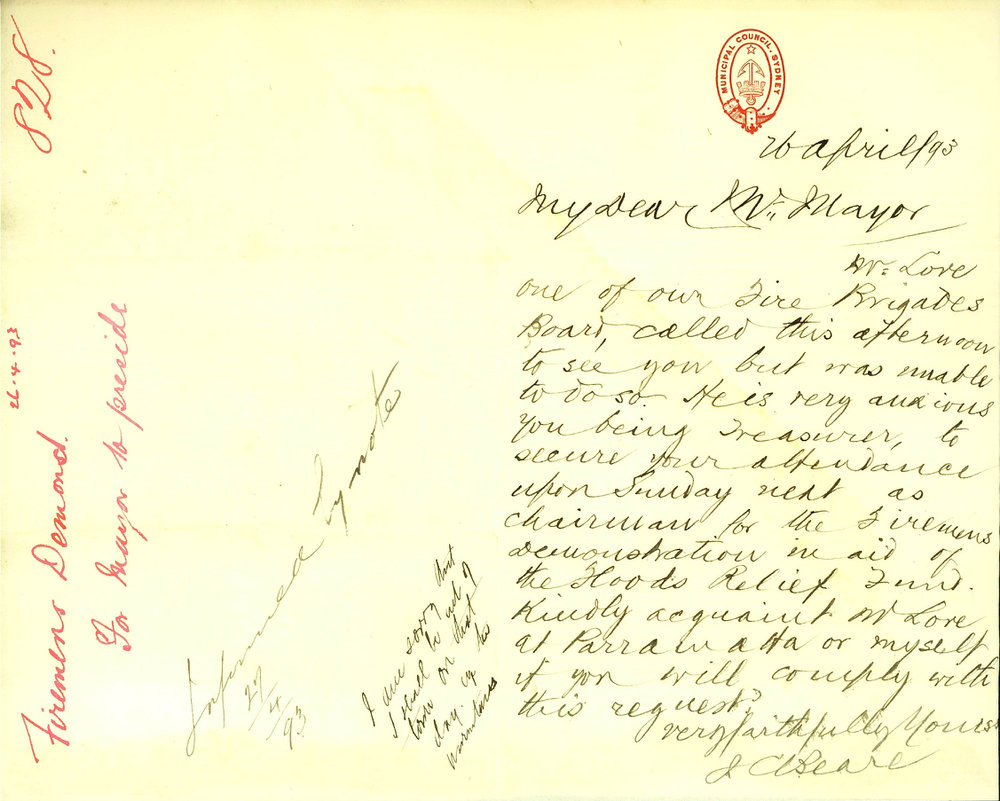 MUNICIPAL COUNCIL. SYDNEY
26 April/93
My Dear Mr. Mayor
Mr. Love
one of our Fire Brigades
Board, called this afternoon
to see you but was unable
to do so. He is very anxious
You being Treasurer, to
secure your attendance
upon Sunday next as
chairman for the Firemens
Demonstration in aid of
the Floods Relief Fund.
Kindly acquaint Mr Love
at Parramatta or myself
if you will comply with
this request?
very faithfully Yours
J C Beare
828.
26.4.93
Firemens Demond.
For Mayor to preside
Informed by note
27/4/93
I am sorry that
I shall be out of
town on that
day